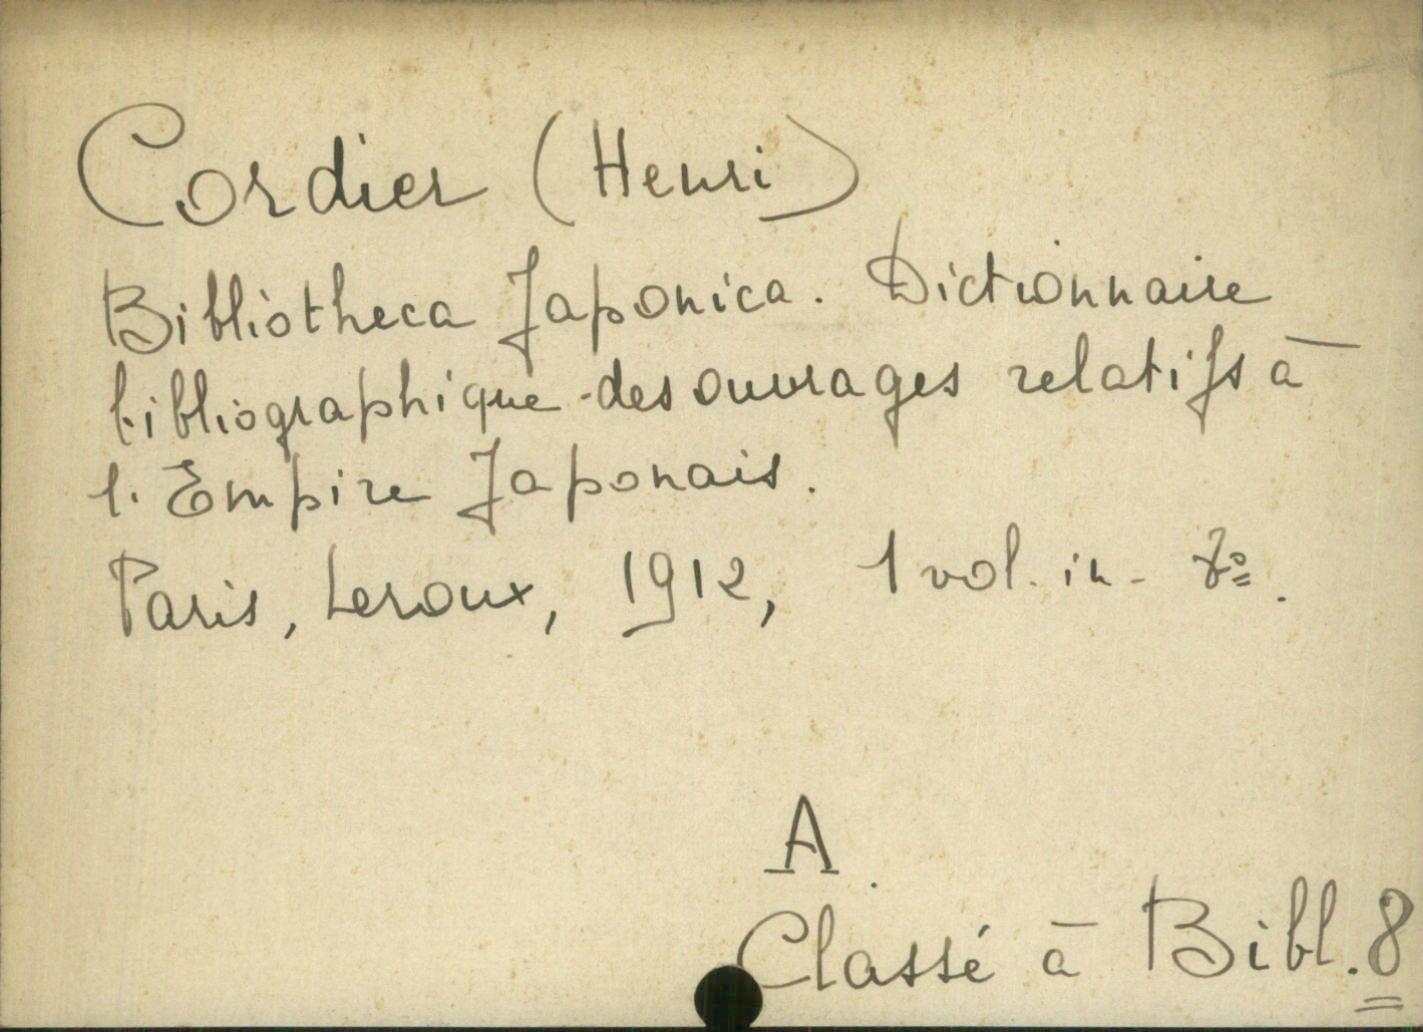 Cordier (Henri)
Bibliotheca Japonica. Dictionnaire
bibliographique des ouvrages relatifs à
l'Empire Japonais.
Paris, Leroux, 1912, 1 vol. in-8º.
A.
Classé à Bibl. 8